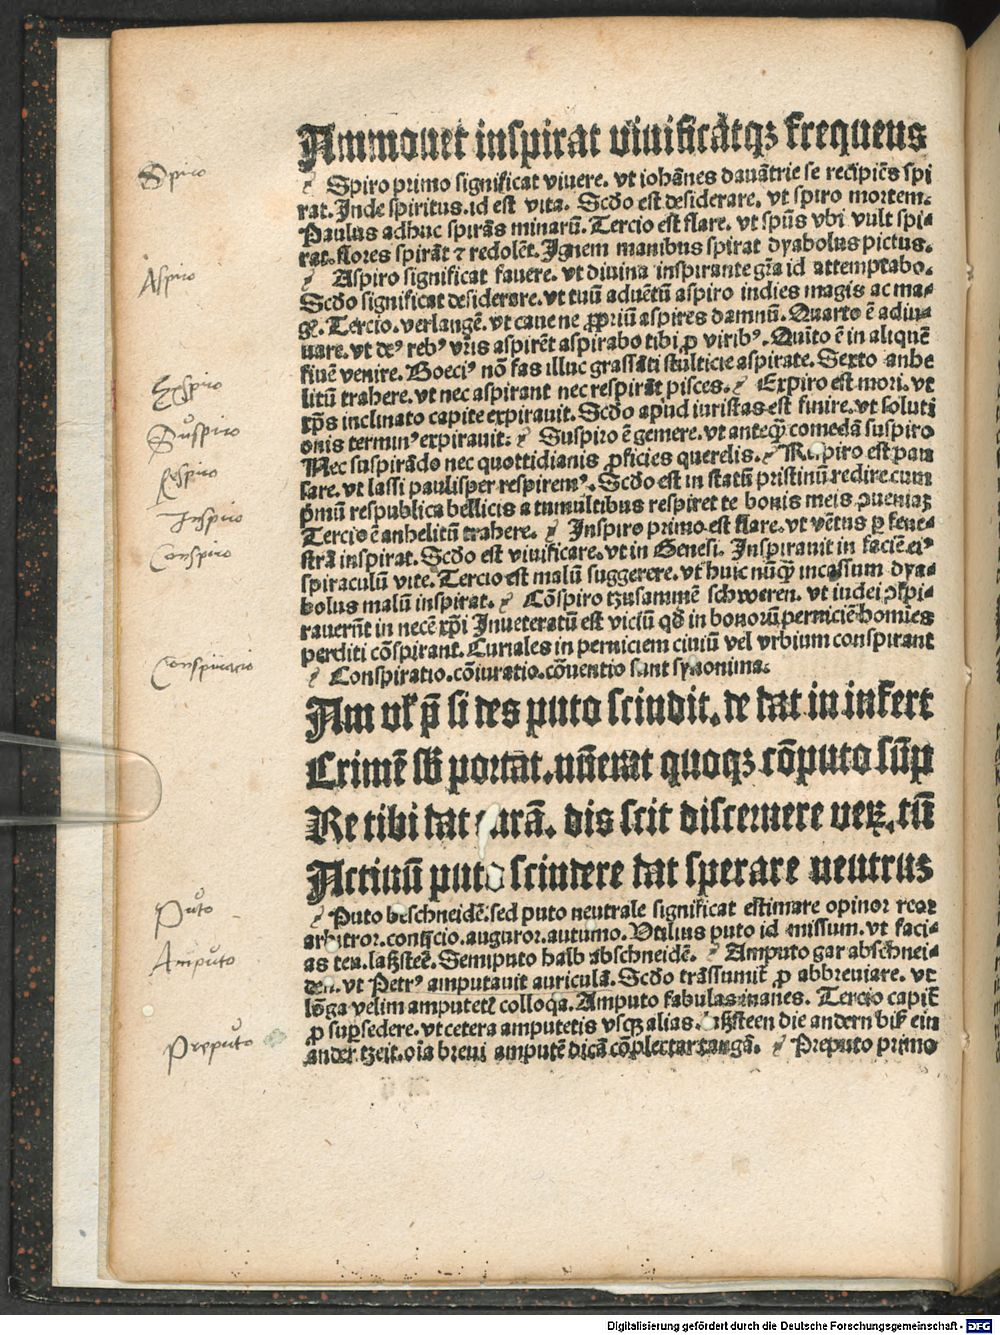 Ammouet inspirat viuificātqꝫ frequens
Spiro
Spiro primo significat viuere. vt iohānes dauātrie se recipiēs spi
rat. Inde spiritus. id est vita. Scďo est desiderare. vt spiro mortem.
Paulus adhuc spirās minarū. Tercio est flare. vt spūs vbi vult spi-
rat. flores spirāt ⁊ redolēt. Ignem manibus spirat dyabolus pictus.
Aspiro
Aspiro significat fauere. vt diuina inspirante gr̄a id attemptabo.
Scďo significat desiderare. vt tuū aduētū aspiro indies magis ac ma-
ge. Tercio. verlangē. vt caue ne ꝓpriū aspires damnū. Quarto ē adiu-
uare. vt deꝰ rebꝰ vr̄is aspirēt aspirabo tibi ꝓ viribꝰ. Quīto ē in aliquē
finē venire. Boeciꝰ nō fas illuc grassāti stulticie aspirate. Sexto anhe
litū trahere. vt nec aspirant nec respirāt pisces. Expiro est mori. vt
Expiro
xp̄s inclinato capite expirauit. Scďo apud iuristas est finire. vt soluti
onis terminꝰ expirauit. Suspiro ē gemere. vt anteqꝫ comedā suspiro
Suspiro
Nec suspirādo nec quottidianis ꝓficies querelis. Respiro est pau
sare. vt lassi paulisper respiremꝰ. Scďo est in statū pristinū redire. cum
Respiro
p̄mū respublica bellicis a tumultibus respiret te bonis meis ꝯueniaꝫ
Inspiro
Tercio ē anhelitū trahere. Inspiro primo est flare. vt vētus ꝑ fene-
strā inspirat. Scďo est viuificare. vt in Genesi. Inspirauit in faciē eiꝰ
Conspiro
spiraculū vite. Tercio est malū suggerere. vt huic nūqꝫ incassum dya-
bolus malū inspirat. Cōspiro tzusammē schweren. vt iudei ꝯspi-
rauerūt in necē xp̄i Inueteratū est viciū qď in bonorū perniciē homīes
perditi cōspirant. Curiales in perniciem ciuiū vel vrbium conspirant
Conspiratio
Conspiratio. cōiuratio. cōuentio sunt synonima.
Am vl' p̄ si des puto scindit. de dat in infert
Crimē sb̄ portat. nūerat quoqꝫ cōputo sūp
Re tibi dat curā. dis scit discernere veꝝ. tū
Actiuū puto scindere dat sperare neutrus
Puto
Puto beschneidē. sed puto neutrale significat estimare opinor reor
arbitror. conijcio. auguror. autumo. Vtilius puto id missum. vt faci-
as ten. laßsteē. Semiputo halb abschneidē. Amputo gar abschnei-
Amputo
den. vt Petrꝰ amputauit auriculā. Scďo trāssumit̄ ꝓ abbreuiare. vt
lōga velim amputetꝭ colloqa. Amputo fabulas inanes. Tercio capit̄
ꝓ sup̲sedere. vt cetera amputetis vsqꝫ alias. laßsteen die andern biß ein
Preputo
ander tzeit. oīa breui amputē dicā cōplectar tangā. Preputo primo
Digitalisierung gefördert durch die Deutsche Forschungsgemeinschaft - DFG